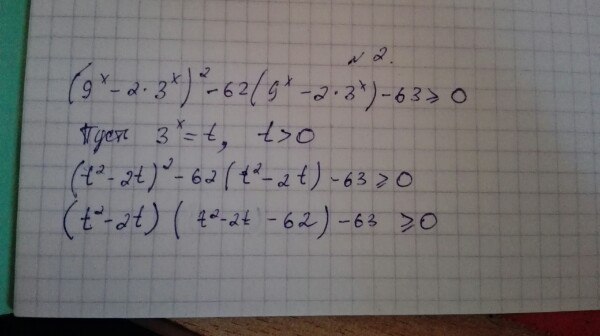 № 2.
(9^x - 2·3^x)^2 - 62(9^x - 2·3^x) - 63 ≥ 0
Пусть 3^x = t, t > 0
(t^2 - 2t)^2 - 62(t^2 - 2t) - 63 ≥ 0
(t^2 - 2t)(t^2 - 2t - 62) - 63 ≥ 0